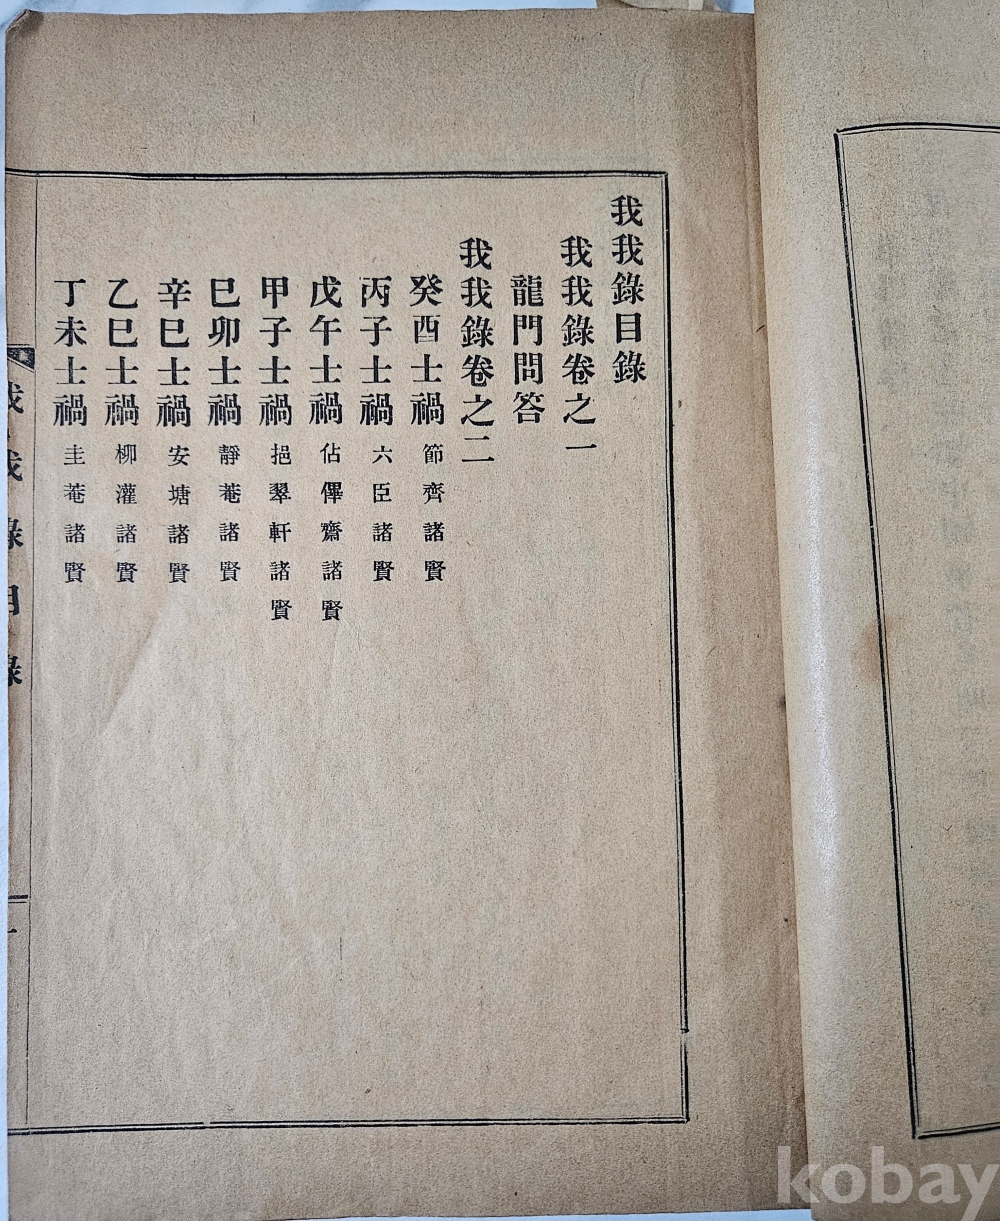 我我錄目錄
我我錄卷之一
龍門問答
我我錄卷之二
癸酉士禍 節齊諸賢
丙子士禍 六臣諸賢
戊午士禍 佔俾齋諸賢
甲子士禍 挹翠軒諸賢
巳卯士禍 靜菴諸賢
辛巳士禍 安塘諸賢
乙巳士禍 柳灌諸賢
丁未士禍 圭菴諸賢
我我錄目錄
一
kobay